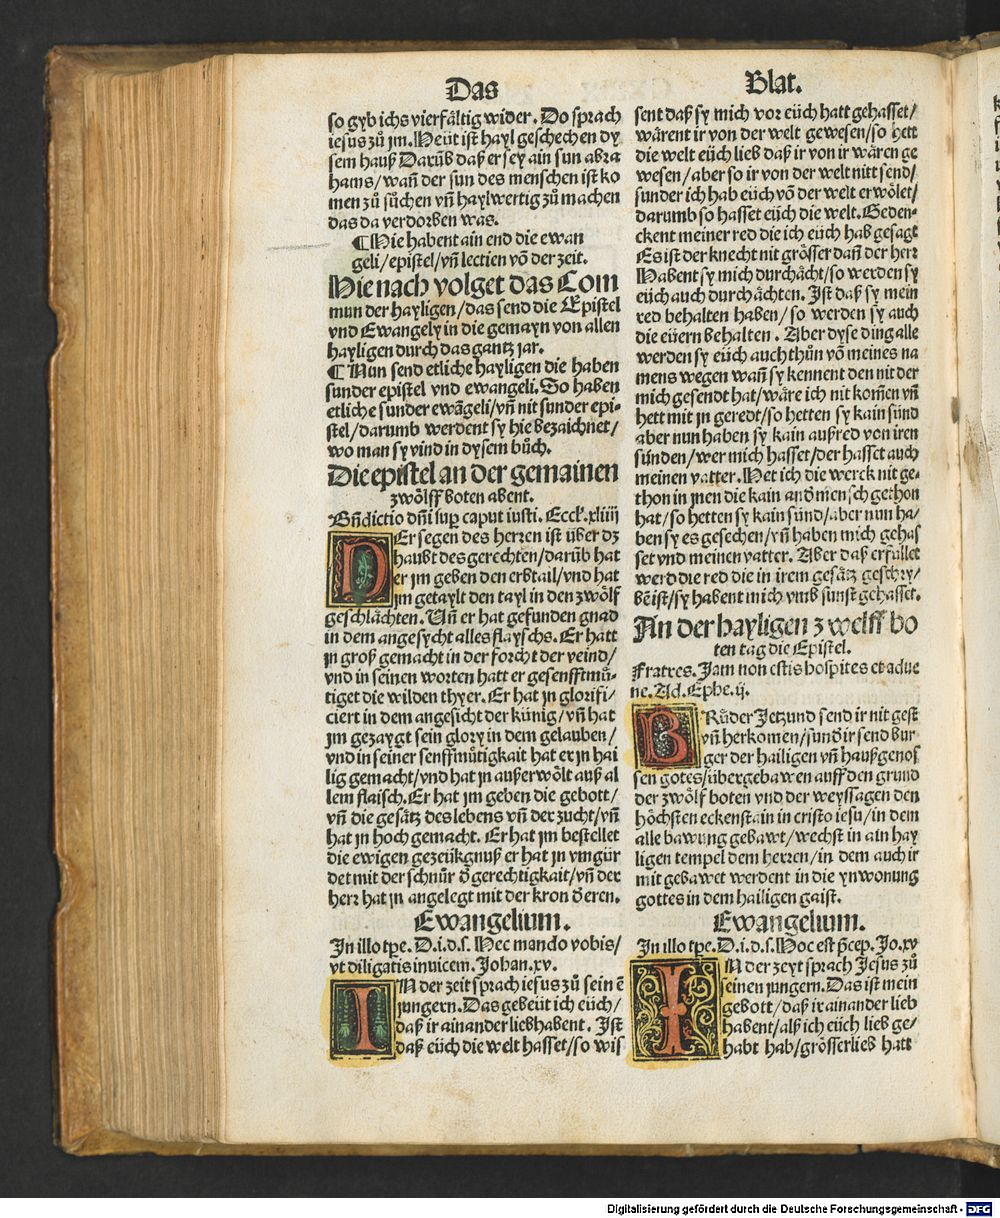 Das
Blat.
so gyb ichs vierfältig wider. Do sprach
iesus zů jm. Heüt ist hayl geschechen dy
sem hauß Darūb daß er sey ain sun abra
hams/wañ der sun des menschen ist ko
men zů sůchen vñ haylwertig zů machen
das da verdorben was.
¶ Hie habent ain end die ewan
geli/epistel/vñ lectien vō der zeit.
Hie nach volget das Com
mun der hayligen/das send die Epistel
vnd Ewangely in die gemayn von allen
hayligen durch das gantz jar.
¶ Nun send etliche hayligen die haben
sunder epistel vnd ewangeli. So haben
etliche sunder ewāgeli/vñ nit sunder epi-
stel/darumb werdent sy hie bezaichnet/
wo man sy vind in dysem bůch.
Die epistel an der gemainen
zwölff boten abent.
Bñdictio dñi suꝑ caput iusti. Eccl. xliiij
DEr segen des herren ist über dz
haubt des gerechten/darūb hat
er jm geben den erbtail/vnd hat
jm getaylt den tayl in den zwölf
geschlächten. Uñ er hat gefunden gnad
in dem angesycht alles flayschs. Er hatt
jn groß gemacht in der forcht der veind/
vnd in seinen worten hatt er gesenfftmů-
tiget die wilden thyer. Er hat jn glorifi-
ciert in dem angesicht der künig/vñ hat
jm gezaygt sein glory in dem gelauben/
vnd in seiner senffmůtigkait hat er jn hai
lig gemacht/vnd hat jn außerwölt auß al
lem flaisch. Er hat jm geben die gebott/
vñ die gesätz des lebens vñ der zucht/vñ
hat jn hoch gemacht. Er hat jm bestellet
die ewigen gezeükgnuß er hat jn vmgür
det mit der schnůr ď gerechtigkait/vñ der
herr hat jn angelegt mit der kron ď eren.
Ewangelium.
In illo tpe. D.i.d.s. Hec mando vobis/
vt diligatis inuicem. Johan. xv.
IN der zeit sprach iesus zů sein ē
jungern. Das gebeüt ich eüch/
daß ir ainander liebhabent. Ist
daß eüch die welt hasset/so wis
sent daß sy mich vor eüch hatt gehasset/
wärent ir von der welt gewesen/so hett
die welt eüch lieb daß ir von ir wären ge
wesen/aber so ir von der welt nitt send/
sunder ich hab eüch vō der welt erwölet/
darumb so hasset eüch die welt. Geden-
ckent meiner red die ich eüch hab gesagt
Es ist der knecht nit grösser dañ der herr
Habent sy mich durchächt/so werden sy
eüch auch durchächten. Ist daß sy mein
red behalten haben/so werden sy auch
die eüern behalten. Aber dyse ding alle
werden sy eüch auch thůn vō meines na
mens wegen wañ sy kennent den nit der
mich gesendt hat/wäre ich nit kom̄en vñ
hett mit jn geredt/so hetten sy kain sünd
aber nun haben sy kain außred von iren
sünden/wer mich hasset/der hasset auch
meinen vatter. Het ich die werck nit ge-
thon in jnen die kain and mensch gethon
hat/so hetten sy kain sünd/aber nun ha-
ben sy es gesechen/vñ haben mich gehas
set vnd meinen vatter. Aber daß erfüllet
werd die red die in irem gesätz geschry-
bē ist/sy habent mich vmb sunst gehasset.
An der hayligen zwelff bo
ten tag die Epistel.
Fratres. Jam non estis hospites et adue
ne. Ad. Ephe. ij.
BRůder Jetzund send ir nit gest
vñ herkomen/sunď ir send bur
ger der hailigen vñ haußgenos
sen gotes/übergebawen auff den grund
der zwölf boten vnd der weyssagen den
höchsten eckenstain in cristo iesu/in dem
alle bawung gebawt/wechst in ain hay
ligen tempel dem herren/in dem auch ir
mit gebawet werdent in die ynwonung
gottes in dem hailigen gaist.
Ewangelium.
In illo tpe. D.i.d.s. Hoc est p̄cep. Jo. xv
IN der zeyt sprach Jesus zů
seinen jungern. Das ist mein
gebott/daß ir ainander lieb
habent/alß ich eüch lieb ge-
habt hab/grösser lieb hatt
Digitalisierung gefördert durch die Deutsche Forschungsgemeinschaft - DFG